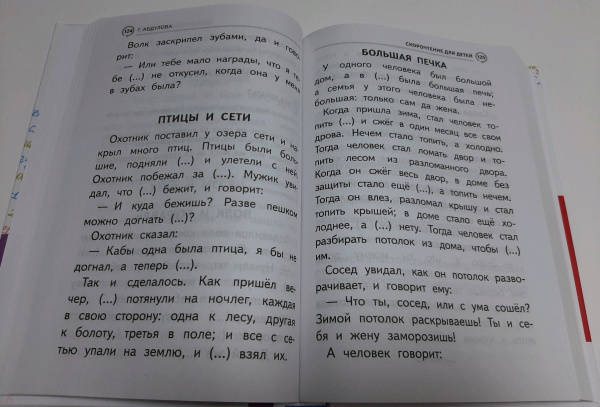 124 Г. АБДУЛОВА
Волк заскрипел зубами, да и гово-
рит:
— Или тебе мало награды, что я те-
бе (...) не откусил, когда она у меня
в зубах была?
ПТИЦЫ И СЕТИ
Охотник поставил у озера сети и на-
крыл много птиц. Птицы были боль-
шие, подняли (...) и улетели с ней.
Охотник побежал за (...). Мужик уви-
дал, что (...) бежит, и говорит:
— И куда бежишь? Разве пешком
можно догнать (...)?
Охотник сказал:
— Кабы одна была птица, я бы не
догнал, а теперь (...).
Так и сделалось. Как пришёл ве-
чер, (...) потянули на ночлег, каждая
в свою сторону: одна к лесу, другая
к болоту, третья в поле; и все с се-
тью упали на землю, и (...) взял их.
СКОРОЧТЕНИЕ ДЛЯ ДЕТЕЙ 125
БОЛЬШАЯ ПЕЧКА
У одного человека был большой
дом, а в (...) была большая печь;
а семья у этого человека была не-
большая: только сам да жена.
Когда пришла зима, стал человек то-
пить (...) и сжёг в один месяц все свои
дрова. Нечем стало топить, а холодно.
Тогда человек стал ломать двор и то-
пить лесом из разломанного двора.
Когда он сжёг весь двор, в доме без
защиты стало ещё (...), а топить нечем.
Тогда он влез, разломал крышу и стал
топить крышей; в доме стало ещё хо-
лоднее, а (...) нету. Тогда человек стал
разбирать потолок из дома, чтобы (...)
им.
Сосед увидал, как он потолок разво-
рачивает, и говорит ему:
— Что ты, сосед, или с ума сошёл?
Зимой потолок раскрываешь! Ты и се-
бя и жену заморозишь!
А человек говорит: